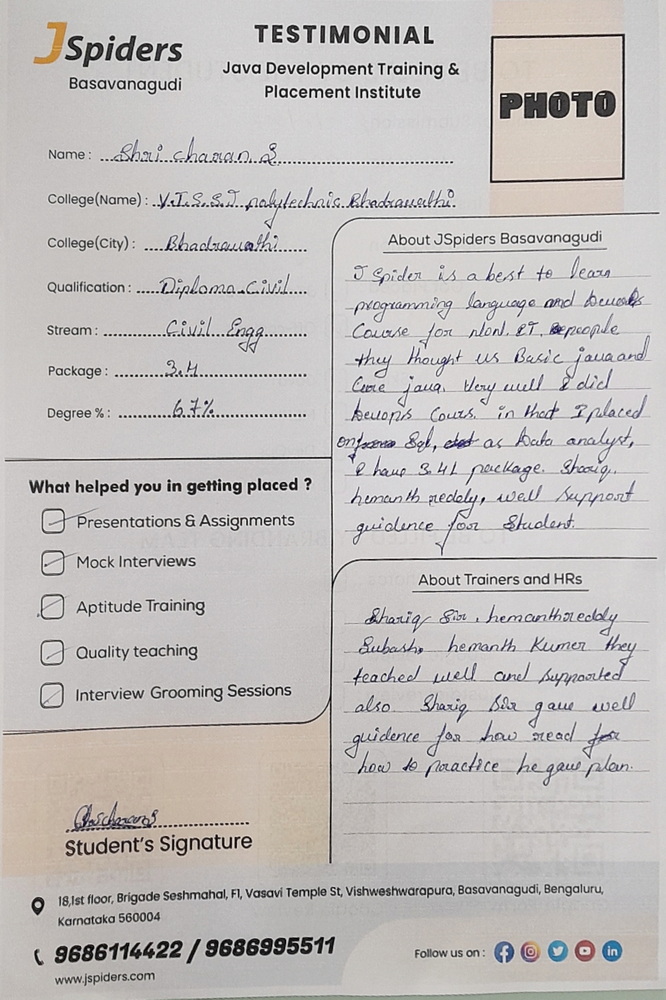 JSpiders
Basavanagudi
TESTIMONIAL
Java Development Training &
Placement Institute
PHOTO
Name : Shri charan S
College(Name) : V.I.S.S.J polytechnic Bhadravathi.
College(City) : Bhadravathi
Qualification : Diploma Civil
Stream : Civil Engg
Package : 3.4
Degree % : 67%
What helped you in getting placed ?
Presentations & Assignments
Mock Interviews
Aptitude Training
Quality teaching
Interview Grooming Sessions
Student's Signature
About JSpiders Basavanagudi
J Spider is a best to learn
programming language and
Course for non. IT people
they thought us Basic java and
Core java. Very well I did
Cours. in that I placed
on Sql, as Data analyst,
I have 3.4L package. Shariq,
hemanth reddy, well support
guidence for Student.
About Trainers and HRs
Shariq Sir, hemanthreddy
Subash, hemanth Kumer they
teached well and supported
also. Shariq Sir gave well
guidence for how read
how to practice he gave plan.
18,1st floor, Brigade Seshmahal, F1, Vasavi Temple St, Vishweshwarapura, Basavanagudi, Bengaluru,
Karnataka 560004
9686114422 / 9686995511
www.jspiders.com
Follow us on :